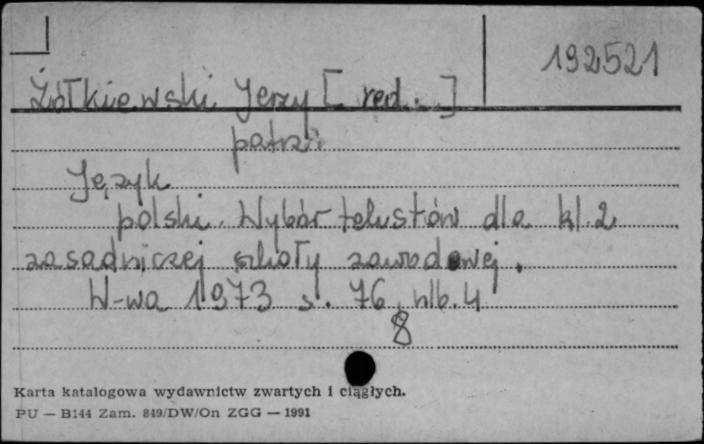 192521
Żółkiewski Jerzy [red.]
patrz:
Język
polski. Wybór tekstów dla kl. 2
zasadniczej szkoły zawodowej.
W-wa 1973 s. 76, nlb. 4
8
Karta katalogowa wydawnictw zwartych i ciągłych.
PU — B144 Zam. 849/DW/On ZGG — 1991